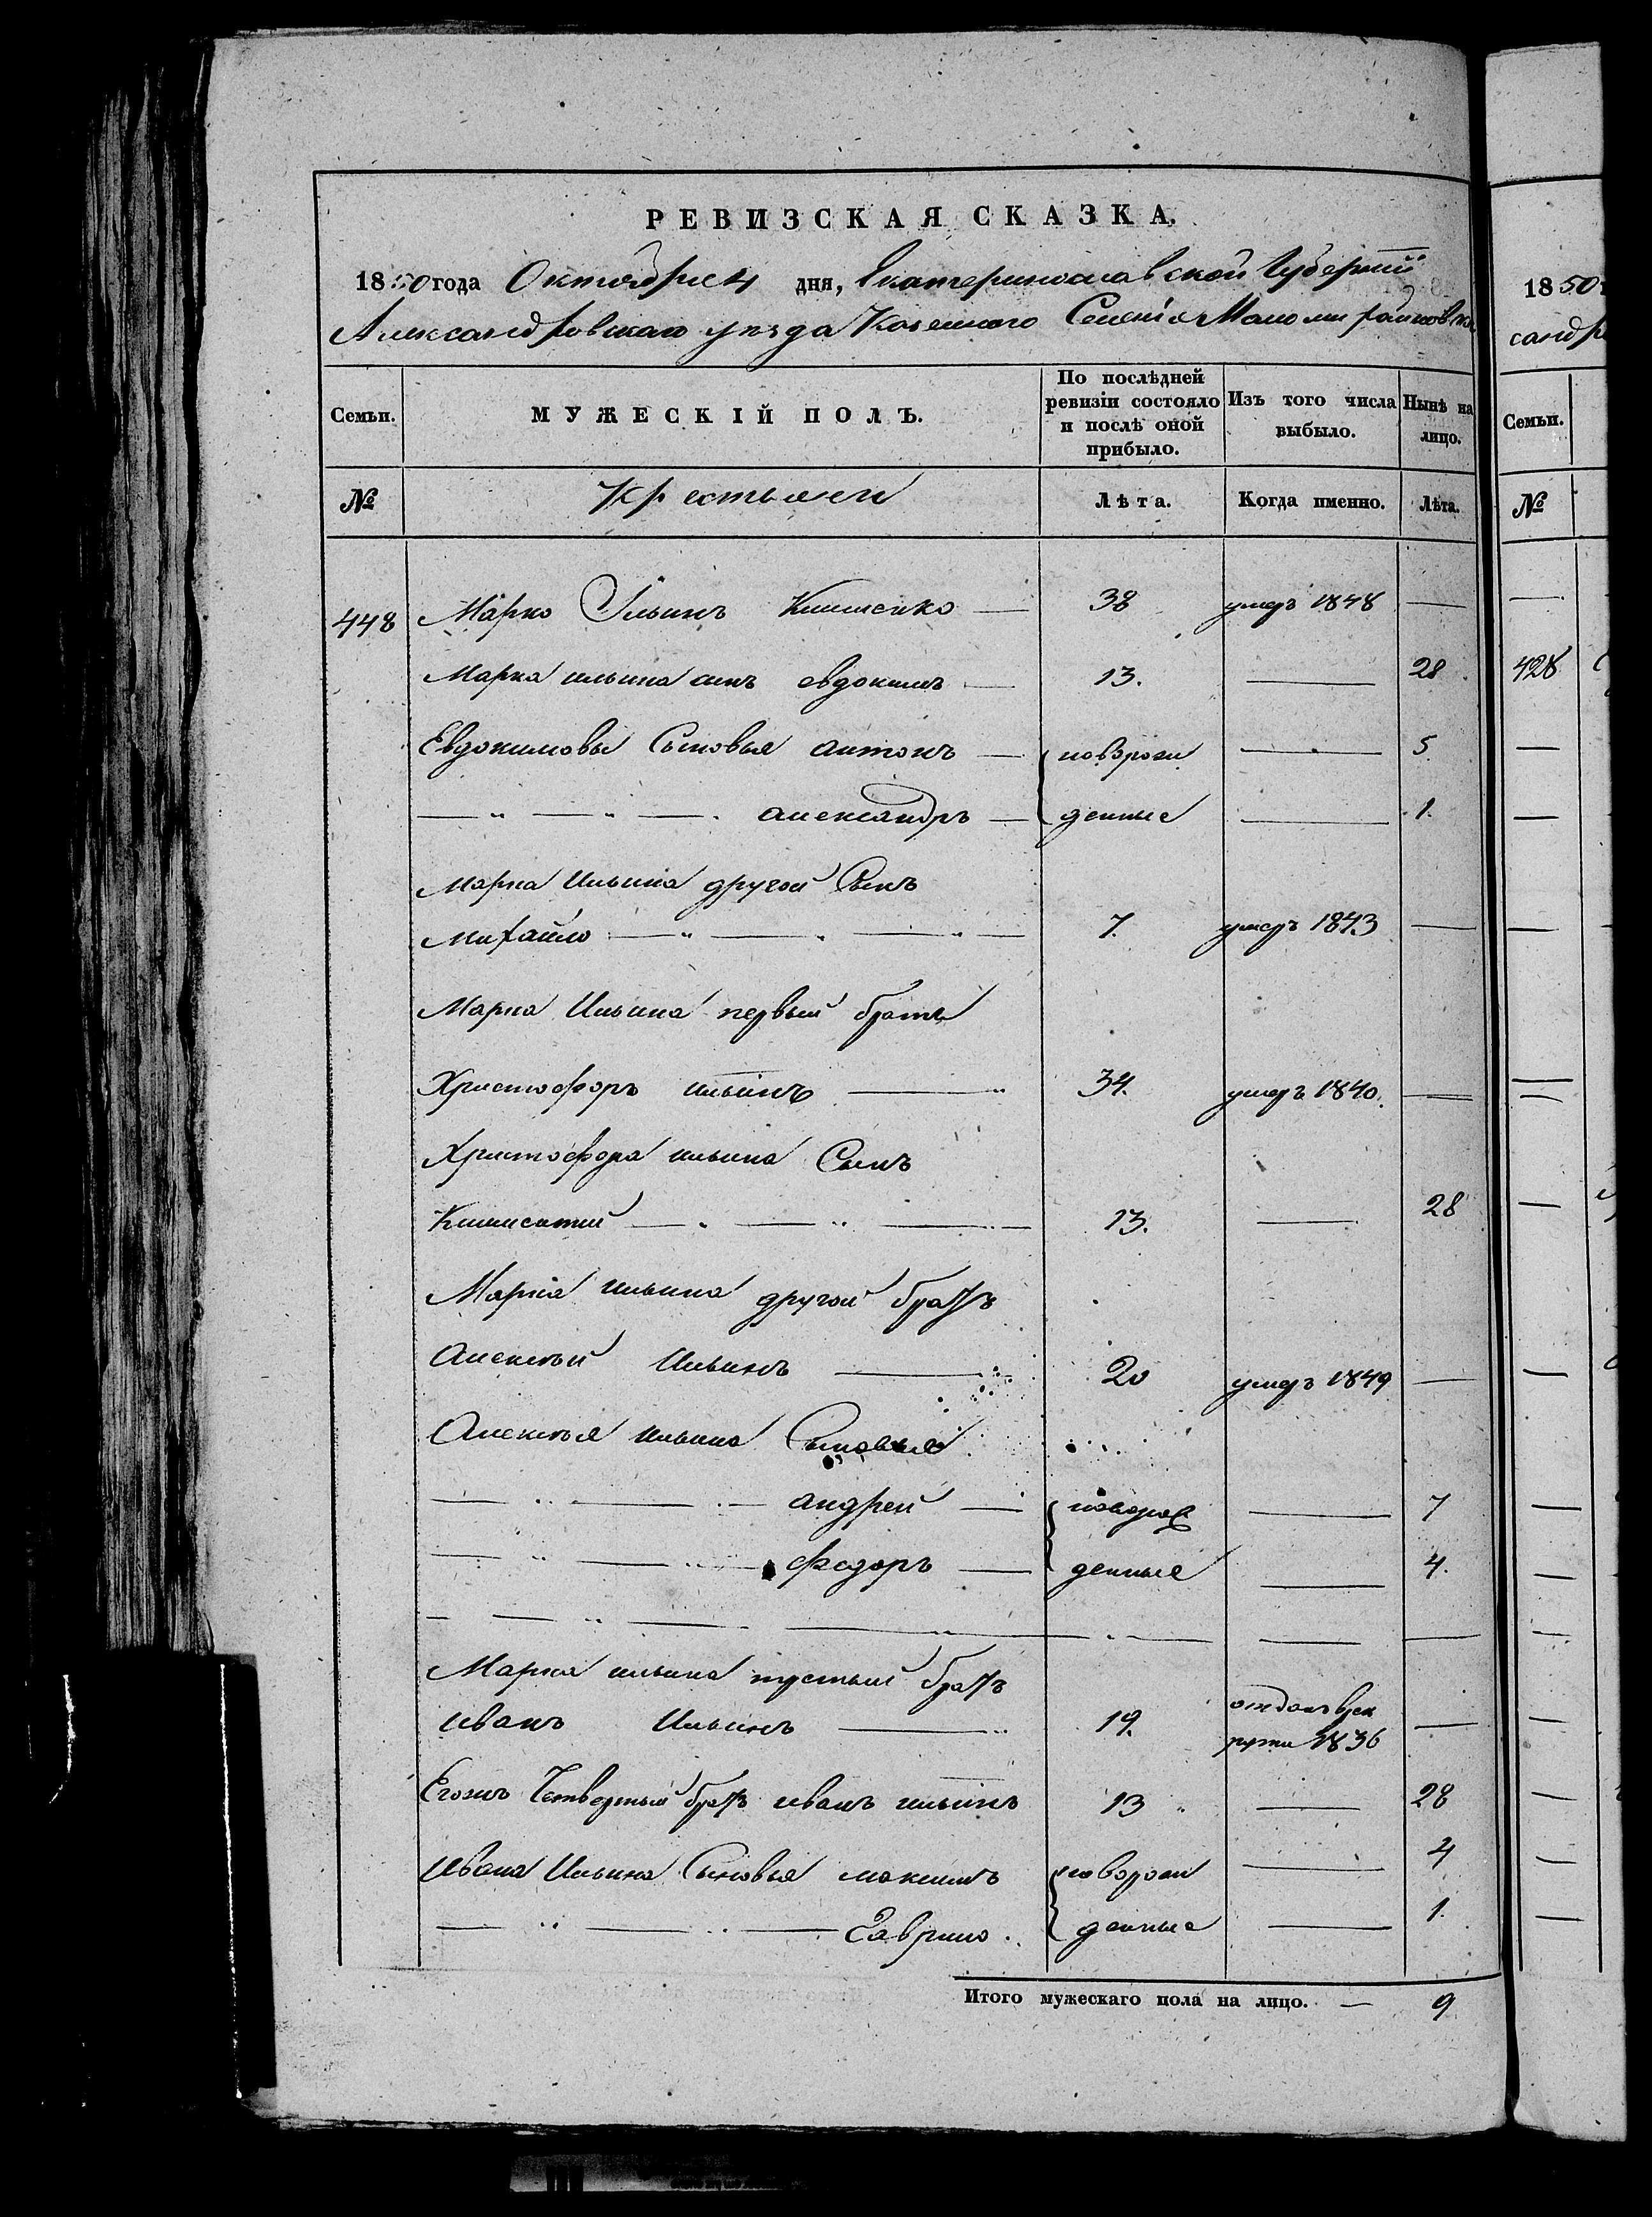 РЕВИЗСКАЯ СКАЗКА.
1850 года Октября 4 дня, Екатеринославской Губернии
Александровскаго уезда Казеннаго Селенія Маломихайловки
Семьи.
МУЖЕСКІЙ ПОЛЪ.
По послѣдней ревизіи состояло и послѣ оной прибыло.
Изъ того числа выбыло.
Нынѣ на лицо.
№
Крестьяни
Лѣта.
Когда именно.
Лѣта.
448 Марко Ильинъ — 38 умеръ 1848 —
Марка ильина сынъ евдокимъ — 13. — 28
Евдокимовы Сыновья антонъ — новорож — 5
— " — " — александръ — денные — 1.
Марка Ильина другой Сынъ
Михайло — " — " — " — 7. умеръ 1843 —
Марка Ильина первый братъ
Христофоръ ильинъ — " 34. умеръ 1840. —
Христофора ильина Сынъ
— " — " — 13. — 28
Марка ильина другой братъ
Алексѣй Ильинъ — 20 умеръ 1849 —
Алексѣя ильина Сыновья
— " — андрей — новорож — 7
— " — " — федоръ — денные — 4.
Марка ильина третьий братъ
иванъ Ильинъ — " 19. отданъ врек
руты 1836 —
Егожъ Четвертый братъ иванъ ильинъ 13 " — 28
Ивана Ильина Сыновья максимъ новорож — 4
— " — " — Гаврило. денные — 1.
Итого мужескаго пола на лицо. — 9
1850
санд
Семьи.
№
428